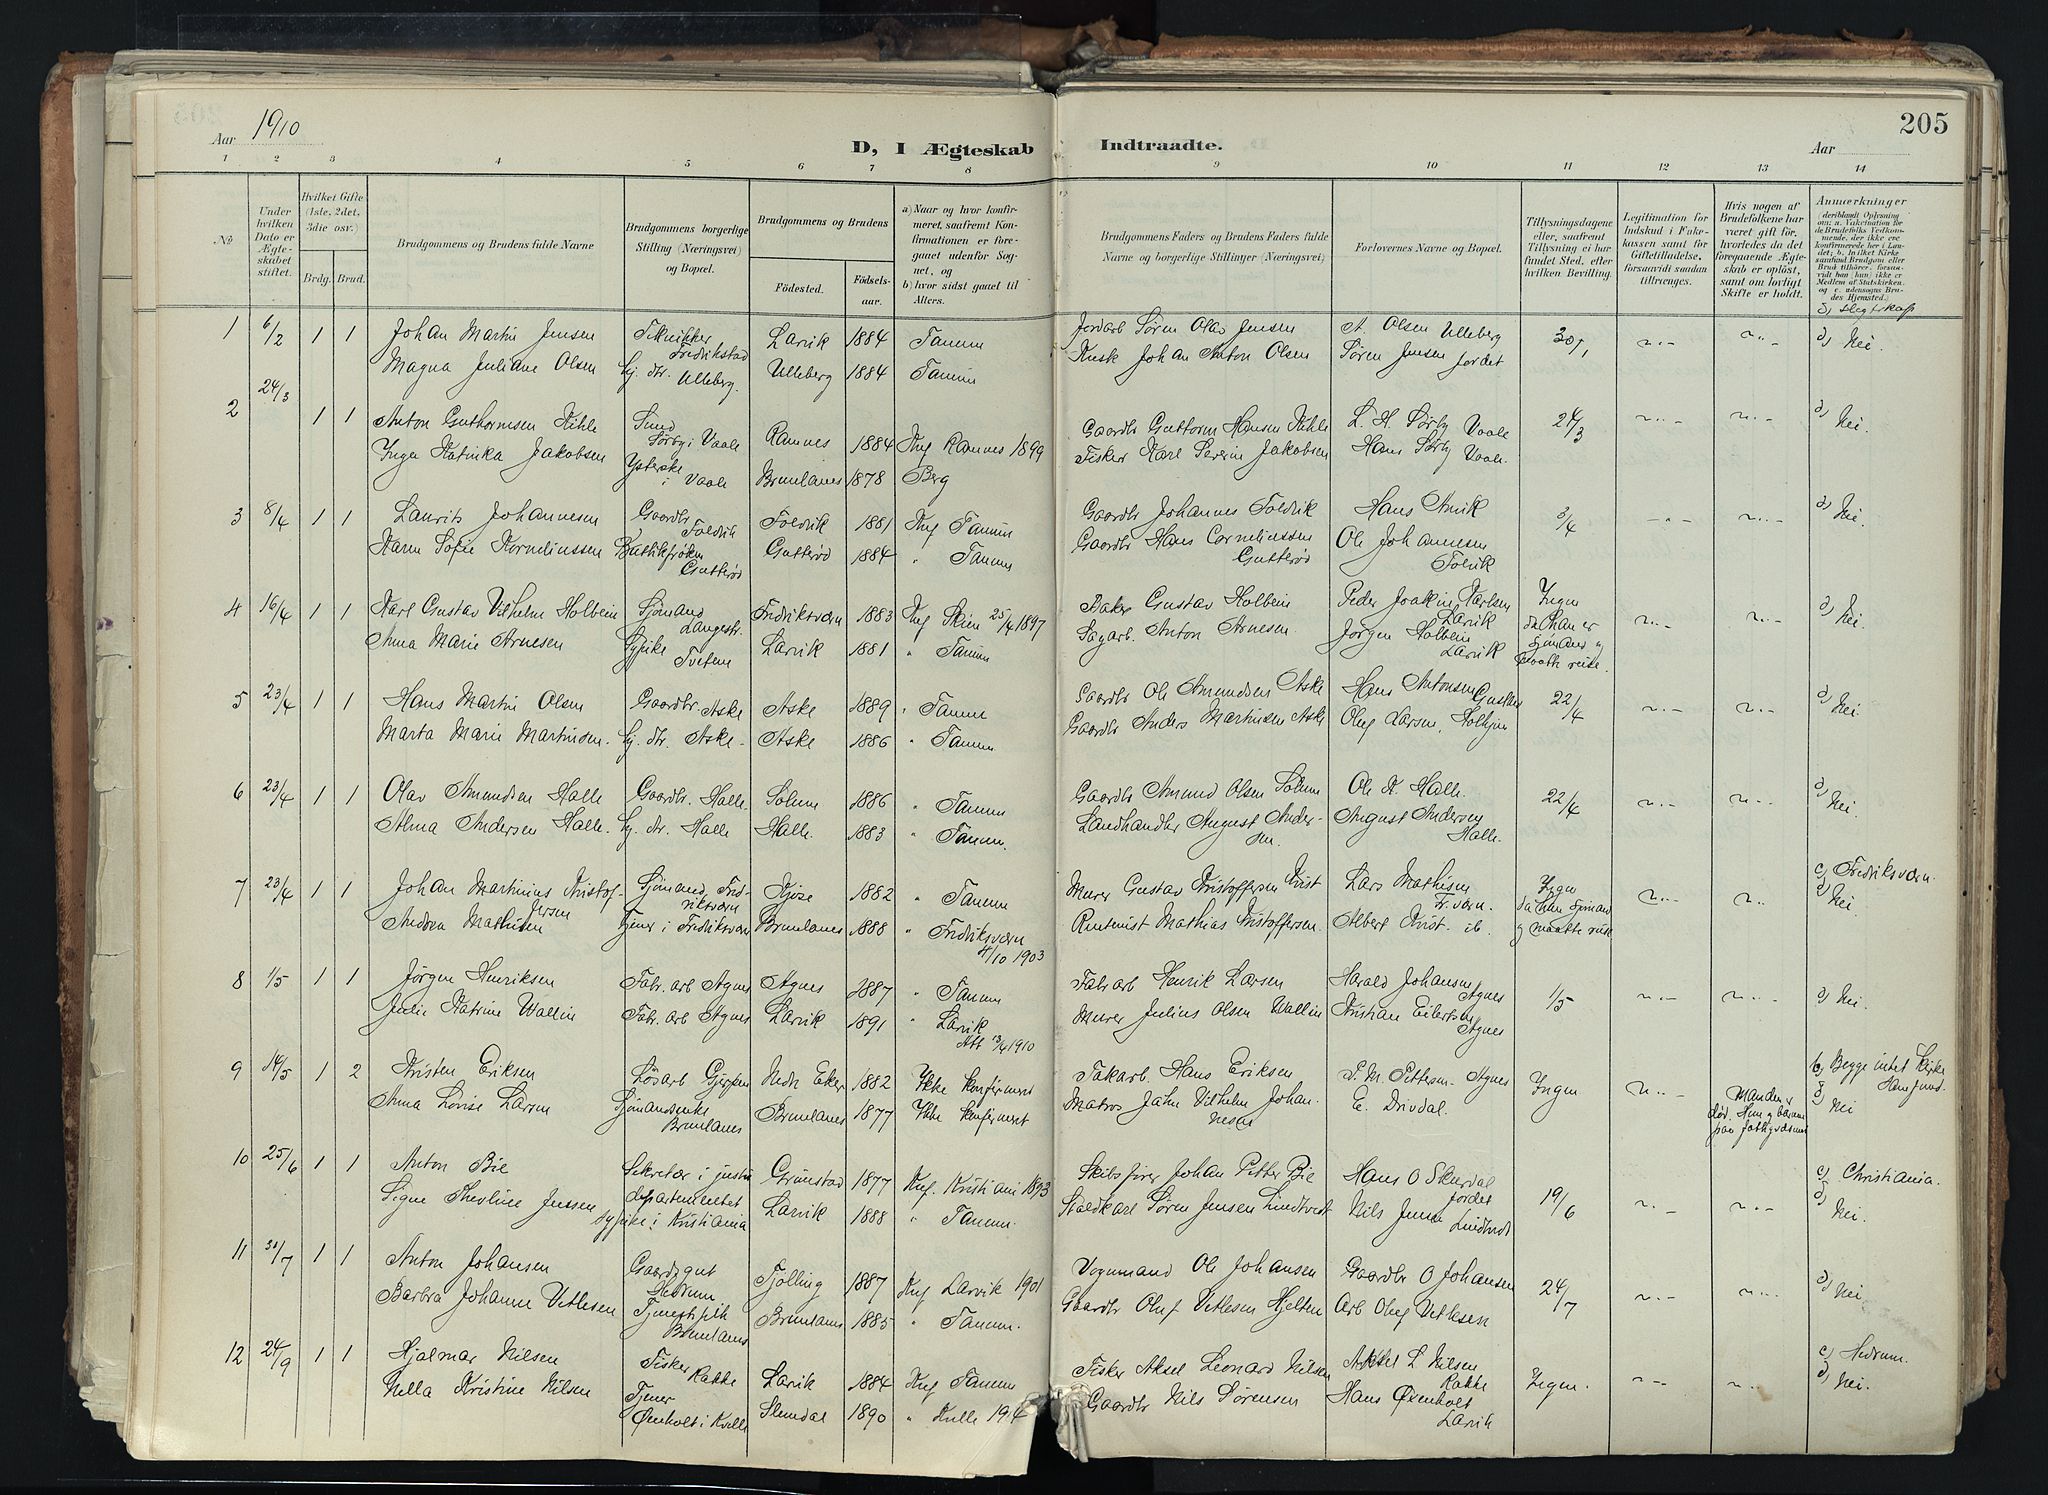 Aar 1910
D, I Ægteskab Indtraadte.
205
Aar
1 2 3 4 5 6 7 8 9 10 11 12 13 14
№
Under hvilken Dato er Ægteskabet stiftet.
Hvilket Gifte (1ste, 2det, 3die osv.)
Brdg. Brud.
Brudgommens og Brudens fulde Navne
Brudgommens borgerlige Stilling (Næringsvei) og Bopæl.
Brudgommens og Brudens
Fødested. Fødselsaar.
a) Naar og hvor konfirmeret, saafremt Konfirmationen er foregaaet udenfor Sognet, og
b) hvor sidst gaaet til Alters.
Brudgommens Faders og Brudens Faders fulde Navne og borgerlige Stillinger (Næringsvei)
Forlovernes Navne og Bopæl.
Tillysningsdagene eller, saafremt Tillysning ei har fundet Sted, efter hvilken Bevilling.
Legitimation for Indskud i Enkekassen samt for Giftetilladelse, forsaavidt saadan tiltrænges.
Hvis nogen af Brudefolkene har været gift før, hvorledes da det foregaaende Ægteskab er opløst, samt om lovligt Skifte er holdt.
Anmærkninger
d, Slegtskap
1 6/2 1 1 Johan Martin Jensen Fredrikstad Larvik 1884 Tanum Jordarb Søren Olav Jensen A. Olsen Ulleberg 30/1 d, Nei.
Magna Juliane Olsen Hj. dtr. Ulleberg. Ulleberg 1884 Tanum Kusk Johan Anton Olsen Søren Jensen Jordet
2 24/3 1 1 Anton Guthormsen Kihle Smed Sørby i Vaale Ramnes 1884 Knf Ramnes 1899 Gaardbr Guttorm Hansen Kihle L. H. Sørby Vaale 24/3 d, Nei.
Inga Katinka Jakobsen Ysterske i Vaale Brunlanes 1878 Berg Fisker Karl Severin Jakobsen Hans Sørby Vaale.
3 8/4 1 1 Laurits Johannesen Gaardbr Foldvik Foldvik 1881 Knf Tanum Gaardbr Johannes Foldvik Hans Anvik 3/4 d, Nei
Karen Sofie Korneliussen Butikfrøken Gutterød Gutterød 1884 " Tanum Gaardbr Hans Corneliussen Gutterød Ole Johannesen Folvik
4 16/4 1 1 Karl Gustav Vilhelm Holbein Sjømand Langestr. Fredriksværn 1883 Knf Skien 25/4 1897 Baker Gustav Holbein Peder Joakim Karlsen Larvik Ingen da han er sjømand og maatte reise. d, Nei.
Anna Marie Arnesen Sypike Tveten Larvik 1881 " Tanum Sagarb. Anton Arnesen. Jørgen Holbein Larvik
5 23/4 1 1 Hans Martin Olsen Gaardbr. Aske Aske 1889 " Tanum Gaardbr Ole Amundsen Aske Hans Antonsen 22/4 d, Nei.
Marta Marie Martinsen. Hj. dtr. Aske. Aske 1886 " Tanum Gaardbr Anders Martinsen Aske Oluf Larsen,
6 23/4 1 1 Olav Amundsen Halle Gaardbr. Halle. Solum 1886 " Tanum Gaardbr Amund Olsen Solum Ole A. Halle. 22/4 d, Nei.
Alma Andersen Halle. Hj. dtr. Halle Halle. 1883 " Tanum. Landhandler August Andersen. August Andersen Halle.
7 23/4 1 1 Johan Martinius Kristoffersen Sjømand, Fredriksværn Kjose 1882 " Tanum Murer Gustav Kristoffersen Kvist Lars Mathisen Fr.værn. Ingen da han Sjømand og maatte reise c, Fredriksværn. d, Nei
Andrea Mathisen Tjener i Fredriksværn Brunlanes 1888 " Fredriksværn 4/10 1903 Rentenist Mathias Kristoffersen. Albert Kvist. ib.
8 1/5 1 1 Jørgen Henriksen Fabr. arb Agnes Agnes 1887 " Tanum Fabr arb Henrik Larsen Harald Johansen Agnes 1/5 d, Nei.
Julie Katrine Wallin Fabr. arb Agnes Larvik 1891 " Larvik Att 13/4 1910 Murer Julius Olsen Wallin Kristian Eilertsen Agnes
9 14/5 1 2 Kristen Eriksen Løsarb Gjerpen Nedr Eker 1882 Ikke konfirmert Fakarb. Hans Eriksen Agnes Ingen Manden er død. b, Begge intet Kirke samfund. d, Nei
Anna Lovise Larsen Sjømandsenke Brunlanes Brunlanes 1877 Ikke konfirmert Matros Jahn Vilhelm Johannesen E. Drivdal.
10 25/6 1 1 Anton Bie Sekretær i justisdepartementet Grimstad 1877 Knf. Kristiania 1893 Skibsfører Johan Petter Bie Hans O Skurdal Jordet 19/6 c, Christiania. d, Nei.
Signe Thevline Jensen sypike i Kristiania Larvik 1888 " Tanum. Staldkarl Søren Jensen Lindtvedt Nils Jensen Lindtvedt
11 31/7 1 1 Anton Johansen Gaardsgut Hedrum Tjølling 1887 Knf Larvik 1901 Vognmand Ole Johansen Gaardbr O Johansen 24/7 d, Nei
Barbra Johanne Vetlesen Tjenestepike Brunlanes Brunlanes 1885 " Tanum. Gaardbr Oluf Vetlesen Hjelten Arb Oluf Vetlesen
12 24/9 1 1 Hjalmar Nilsen Fisker Rakke Larvik 1884 Knf Tanum Fisker Aksel Leonard Nilsen Aksel L Nilsen Rakke Ingen. c, Hedrum. d, Nei.
Nella Kristine Nilsen Tjener Øxenholt i Kvelle Slemdal 1890 " Kvelle 1904 Gaardbr Nils Sørensen Hans Øxenholt Larvik